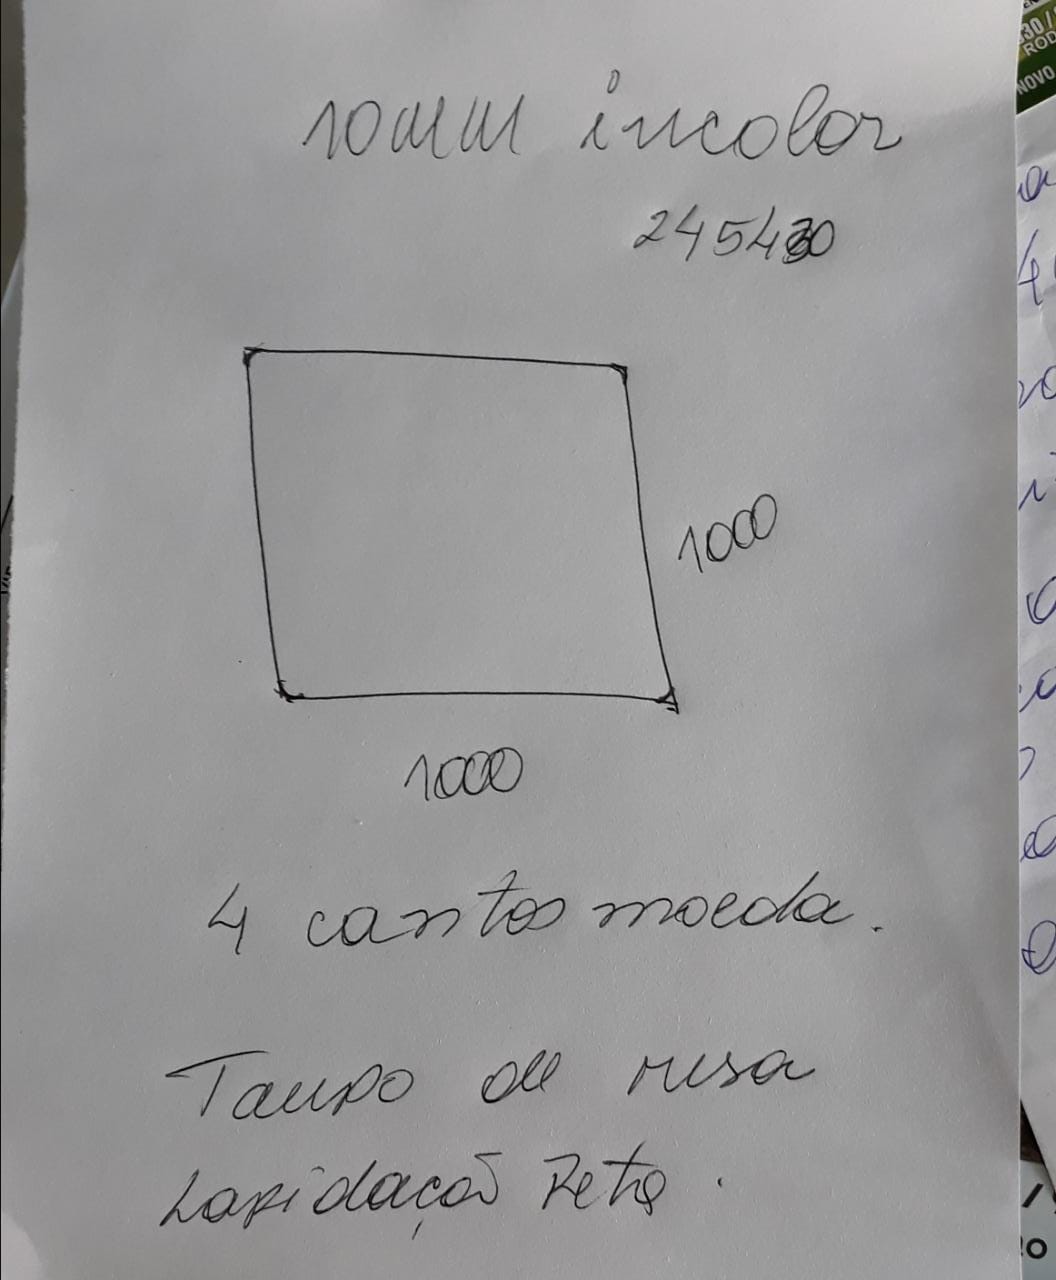 10mm incolor
245430
1000
1000
4 cantos moeda.
Tampo de mesa
Lapidação Reta.
30/
ROD
NOVO